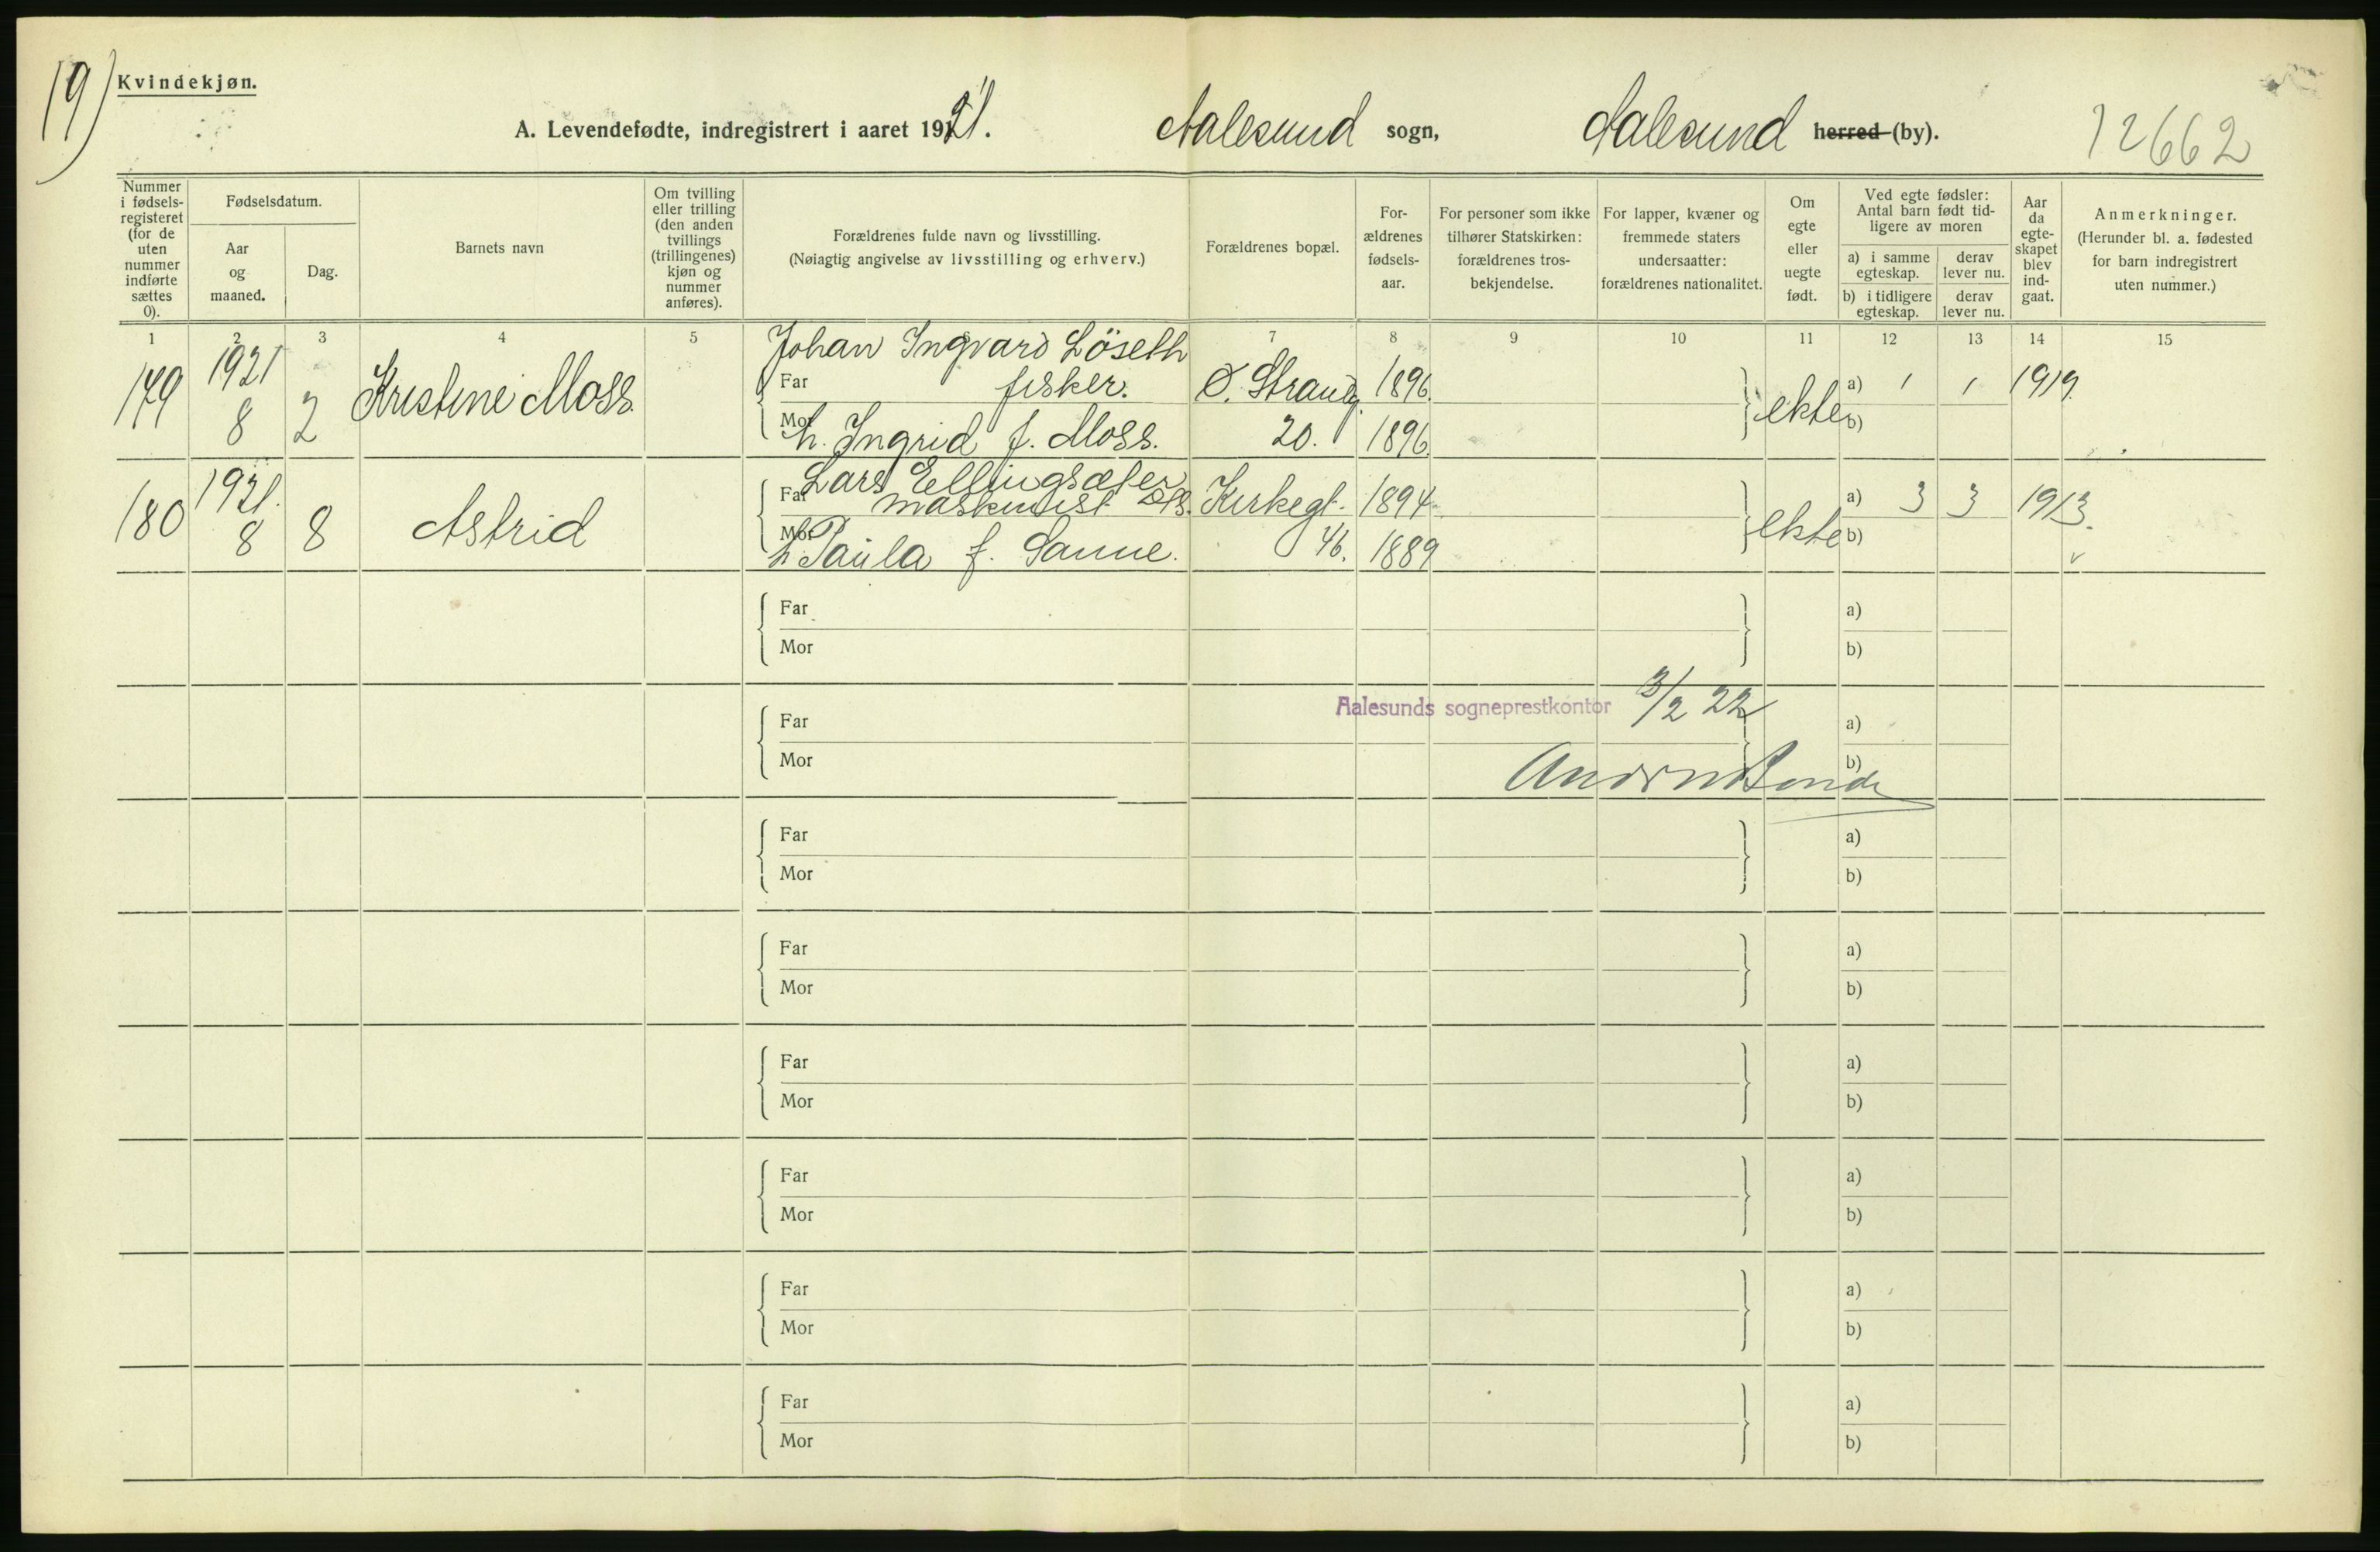 19)
Kvindekjøn.
A. Levendefødte, indregistrert i aaret 1921. Aalesund sogn, Aalesund herred (by). 12662
Nummer i fødsels-registeret (for de uten nummer indførte sættes 0).
Fødselsdatum.
Aar og maaned.
Dag.
Barnets navn
Om tvilling eller trilling (den anden tvillings (trillingenes) kjøn og nummer anføres).
Forældrenes fulde navn og livsstilling.
(Nøiagtig angivelse av livsstilling og erhverv.)
Forældrenes bopæl.
For-ældrenes fødsels-aar.
For personer som ikke tilhører Statskirken: forældrenes tros-bekjendelse.
For lapper, kvæner og fremmede staters undersaatter: forældrenes nationalitet.
Om egte eller uegte født.
Ved egte fødsler: Antal barn født tid-ligere av moren
a) i samme egteskap.
derav lever nu.
b) i tidligere egteskap.
derav lever nu.
Aar da egte-skapet blev ind-gaat.
Anmerkninger.
(Herunder bl. a. fødested for barn indregistrert uten nummer.)
1 2 3 4 5 6 7 8 9 10 11 12 13 14 15
Johan Ingvard Löseth
179 1921 8 2 Kristine Moss Far fisker. Ø. Strandg. 1896. ekte a) 1 1 1919.
Mor h. Ingrid f. Moss. 20. 1896. b)
Lars Ellingsæter
180 1921. 8 8 Astrid Far maskinist D/S. Kirkegt. 1894 ekte a) 3 3 1913.
Mor h. Paula f. Sanne. 46. 1889 b)
Far a)
Mor b)
Aalesunds sogneprestkontor 3/2 22
Far a)
Mor b)
Far a)
Mor b)
Far a)
Mor b)
Far a)
Mor b)
Far a)
Mor b)
Far a)
Mor b)
Far a)
Mor b)